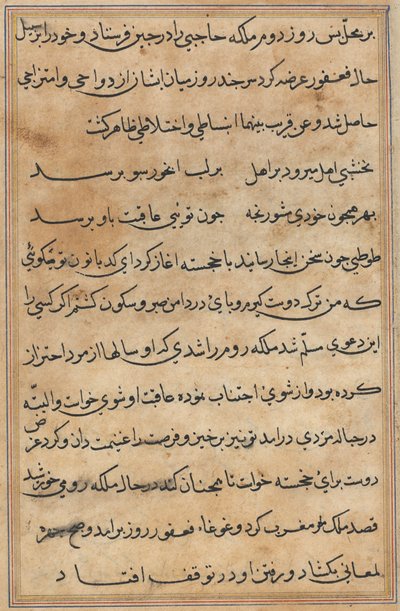 روز دوم ملکه حاجبی را در چین فرستاد و خود را بر سبیل
حاله فغفور عرضه کرد پس چند روز میان ایشان ازدواجی و امتزاجی
حاصل شد و عن قریب بینهما انبساطی و اختلاطی ظاهر گشت
نخشبی اهل میرود بر اهل بر لب
بهر همچون خودی مشو رنجه چون تویی عاقبت باو برسد
طوطی چون سخن اینجا رسانید با خجسته آغاز کرد ای کدبانو تو میگوئی
که من ترک دوست گیرم و پای در دامن صبر و سکون کشم اگر کسی را
این دعوی مسلم شدی ملکه روم را شدی که او سالها از مرد احتراز
کرده بود و از شوی اجتناب نموده عاقبت او شوی خواست و البته
در حاله مردی درآمد تو نیز برخیز و فرصت را غنیمت دان و گرد عرض
دوست برآی خجسته خواست تا همچنان کند در حال ملکه رومی خورشید
قصد ملک مغرب کرد و غوغاء فغفور روز برآمد و صبح چهره
لمعانی بکشاد و رفتن او در توقف افتاد